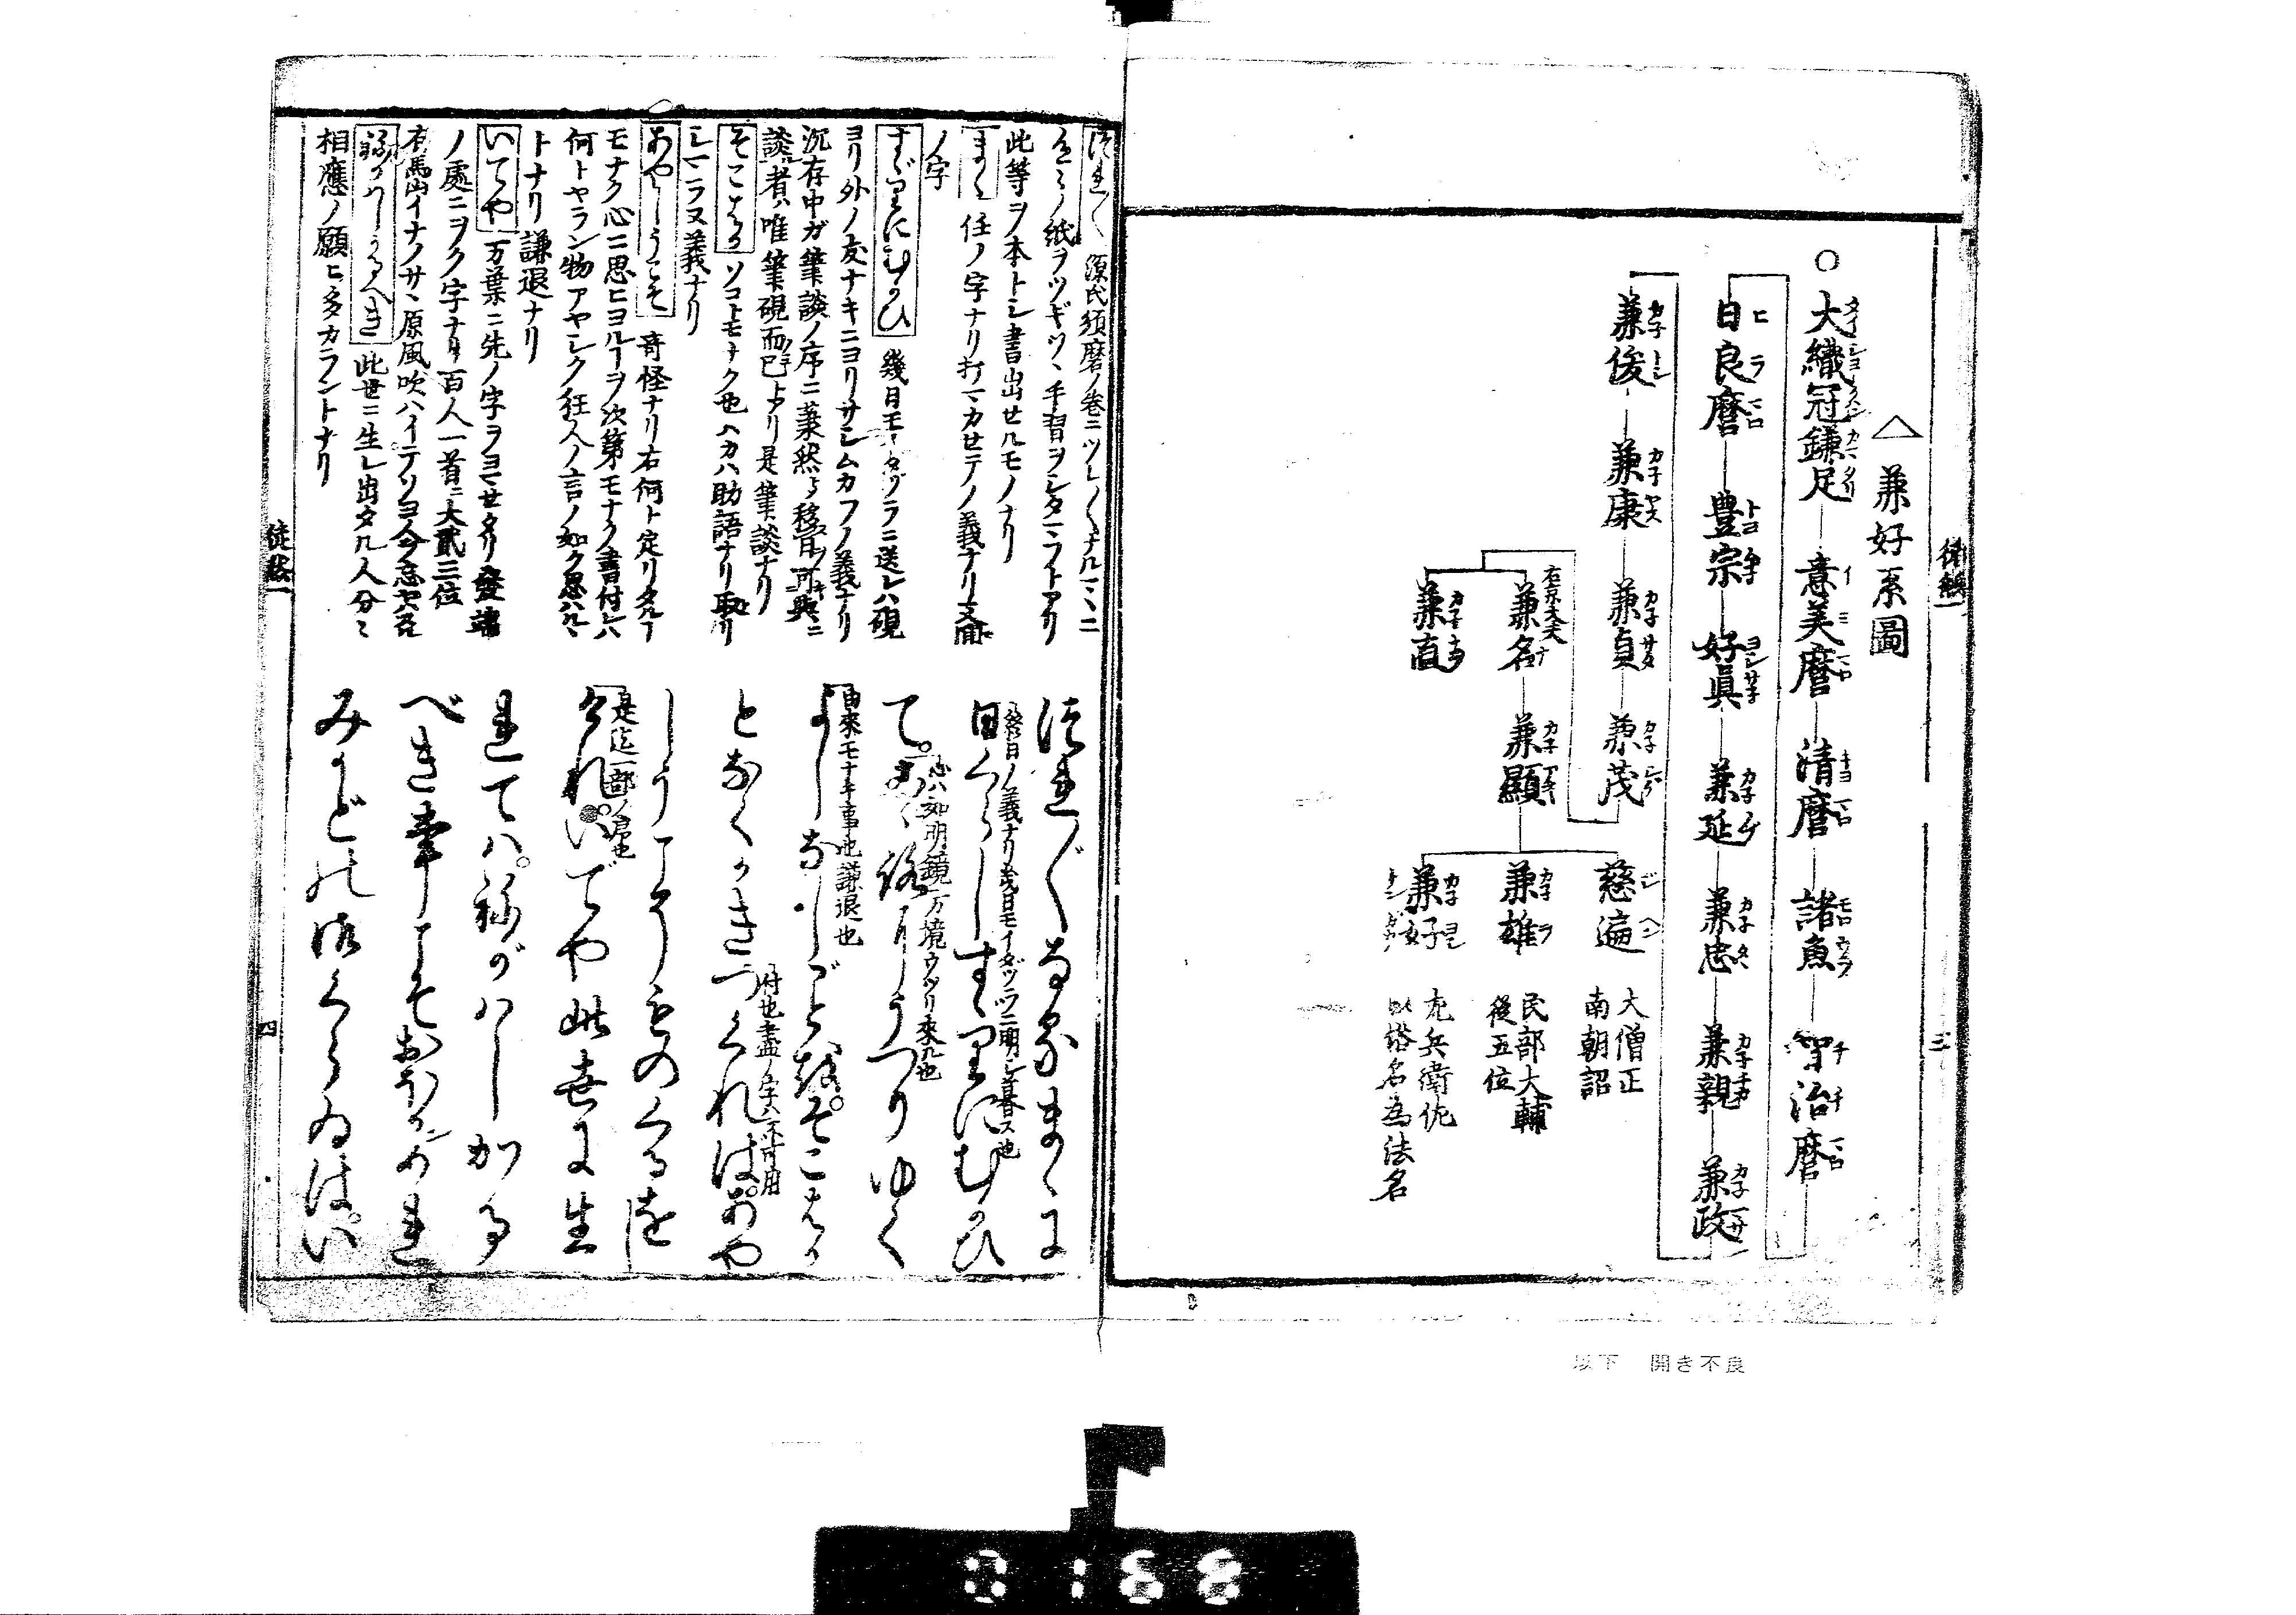 徒然一
三
△兼好系圖
○大織冠鎌足
意美麿
清麿
諸魚
智治麿
日良麿
豊宗
好眞
兼延
兼忠
兼親
兼政
兼俊
兼康
兼貞
兼茂
右京大夫
兼名
兼直
兼顯
慈遍
大僧正
南朝詔
兼雄
民部大輔
從五位
兼好
左兵衛佐
以俗名為法名
つれ〳〵 源氏須磨ノ巻ニツレ〳〵ナルマヽニ
色々ノ紙ヲツギツヽ手習ヲシタマフトアリ
此等ヲ本トシ書出セルモノナリ
まゝ 任ノ字ナリ打マカせテノ義ナリ又随
ノ字
すゞりにむかひ 幾日モイタヅラニ送レハ硯
ヨリ外ノ友ナキニヨリサシムカフノ義ナリ
沉存中ガ筆談ノ序ニ蕭然
談者ハ唯筆硯而已トアリ是筆談ナリ
そこはか ソコトモナク也ハカハ助語ナリ取リ
シマラヌ義ナリ
あやしうこそ 奇怪ナリ右何ト定リタルヿ
モナク心ニ思ヒヨルヿヲ次第モナク書付レハ
何トヤラン物アヤシク狂人ノ言ノ如ク思ハルヽ
トナリ謙退ナリ
いてや 万葉ニ先ノ字ヲヨマせタリ發端
ノ處ニヲク字ナリ百人一首ニ大貳三位
有馬山イナノサヽ原風吹ハイテソヨ人ヲ忘ヤハスル
ねがはしかるべき 此世ニ生レ出タル人分々
相應ノ願ヒ多カラントナリ
つれ〴〵なるまゝに
日くらしすゞりにむかひ
終日ノ義ナリ幾日モイタヅラニ明シ暮ス也
て。心にうつりゆく
心ハ如明鏡万境ウツリ来ル也
よしなしごとを。そこはか
由來モナキ事也謙退也
となくかきつくれば。あや
付也盡ノ字ハ不可用
しうこそものくるを
しけれ。いでや此世に生
是迄一部ノ序也
れては。ねがはしかる
べき事こそおほかめれ
みかどの御くらゐは。い
徒然一
四
以下 開き不良
0188